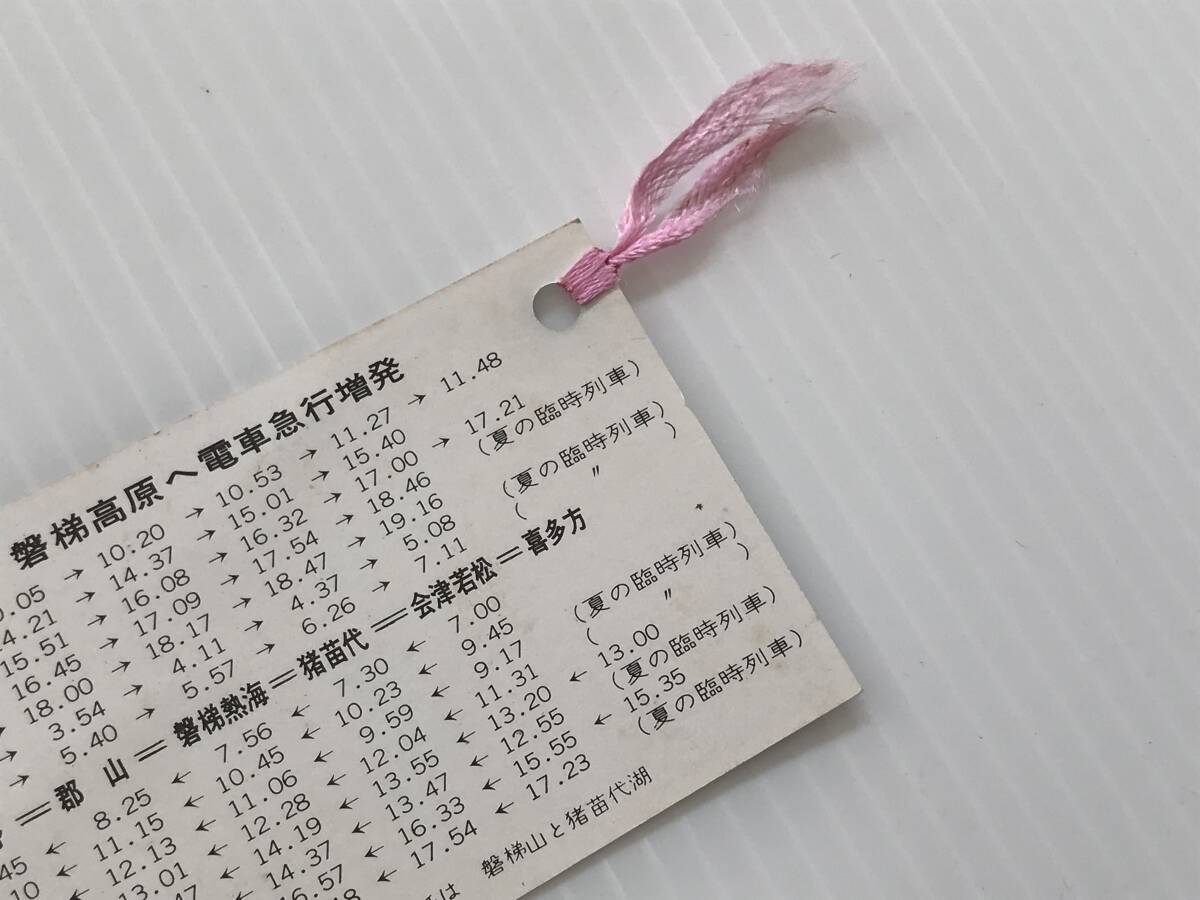 磐梯高原へ電車急行増発
.05 → 10.20 → 10.53 → 11.27 → 11.48
14.21 → 14.37 → 15.01 → 15.40
15.51 → 16.08 → 16.32 → 17.00 → 17.21
16.45 → 17.09 → 17.54 → 18.46 (夏の臨時列車)
→ 18.00 → 18.17 → 18.47 → 19.16
→ 3.54 → 4.11 → 4.37 → 5.08 (夏の臨時列車)
→ 5.40 → 5.57 → 6.26 → 7.11 ( 〃 )
=郡 山=磐梯熱海=猪苗代=会津若松=喜多方
8.25 ← 7.56 ← 7.30 ← 7.00
45 ← 11.15 ← 10.45 ← 10.23 ← 9.45 (夏の臨時列車)
10 ← 12.13 ← 11.06 ← 9.59 ← 9.17 ( 〃 )
← 13.01 ← 12.28 ← 12.04 ← 11.31
47 ← 14.19 ← 13.55 ← 13.20 ← 13.00
← 14.37 ← 13.47 ← 12.55 (夏の臨時列車)
← 16.57 ← 16.33 ← 15.55 ← 15.35
18 ← 17.54 ← 17.23 (夏の臨時列車)
は 磐梯山と猪苗代湖